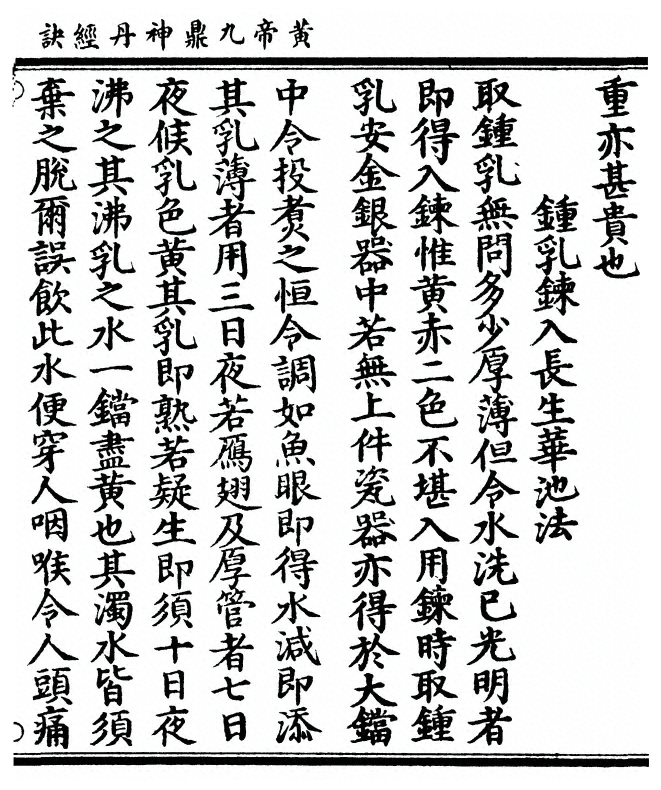 黃帝九鼎神丹經訣
重亦甚貴也
鍾乳鍊入長生華池法
取鍾乳無問多少厚薄但令水洗已光明者
即得入鍊惟黃赤二色不堪入用鍊時取鍾
乳安金銀器中若無上件瓷器亦得於大鐺
中令投煑之恒令調如魚眼即得水減即添
其乳薄者用三日夜若鴈翅及厚管者七日
夜候乳色黃其乳即熟若疑生即須十日夜
沸之其沸乳之水一鐺盡黃也其濁水皆須
棄之脫爾誤飲此水便穿人咽喉令人頭痛